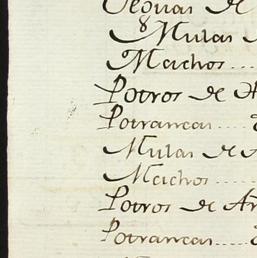 Yeguas de
8
Mulas
Machos....
Potros de A
Potrancas....
Mulas de A
Machos....
Potros de An
Potrancas....